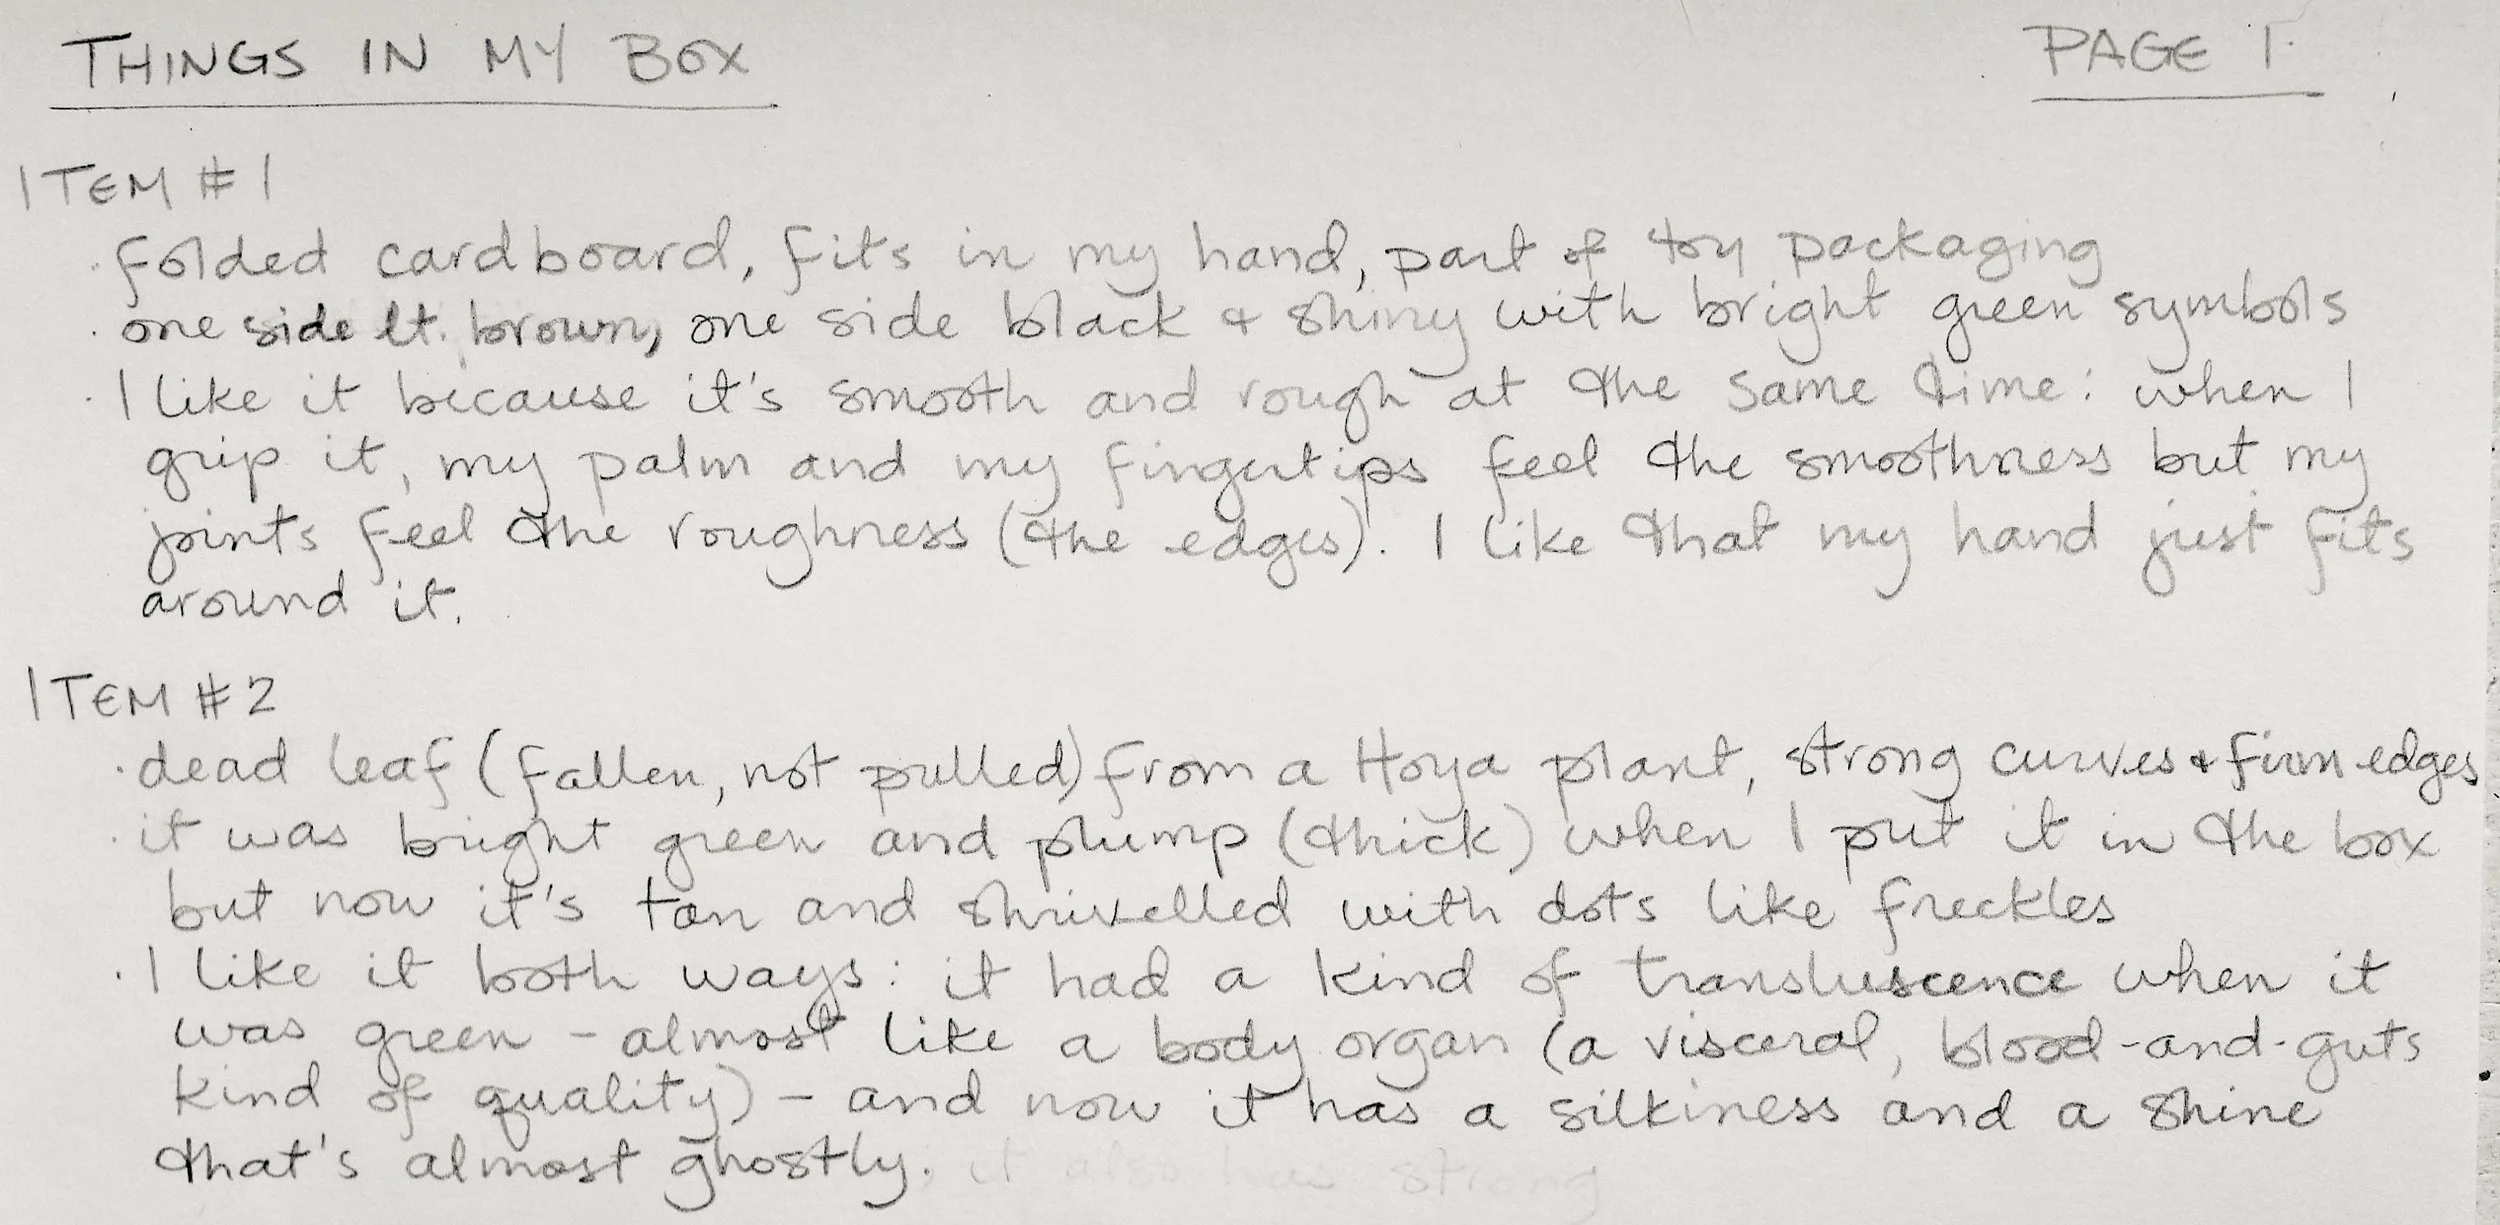 THINGS IN MY BOX
PAGE 1
ITEM #1
· folded cardboard, fits in my hand, part of toy packaging
· one side lt. brown, one side black & shiny with bright green symbols
· I like it because it's smooth and rough at the same time: when I
grip it, my palm and my fingertips feel the smoothness but my
joints feel the roughness (the edges). I like that my hand just fits
around it.
ITEM #2
· dead leaf (fallen, not pulled) from a Hoya plant, strong curves & firm edges
· it was bright green and plump (thick) when I put it in the box
but now it's tan and shrivelled with dots like freckles
· I like it both ways: it had a kind of transluscence when it
was green - almost like a body organ (a visceral, blood-and-guts
kind of quality) - and now it has a silkiness and a shine
that's almost ghostly. it also has strong